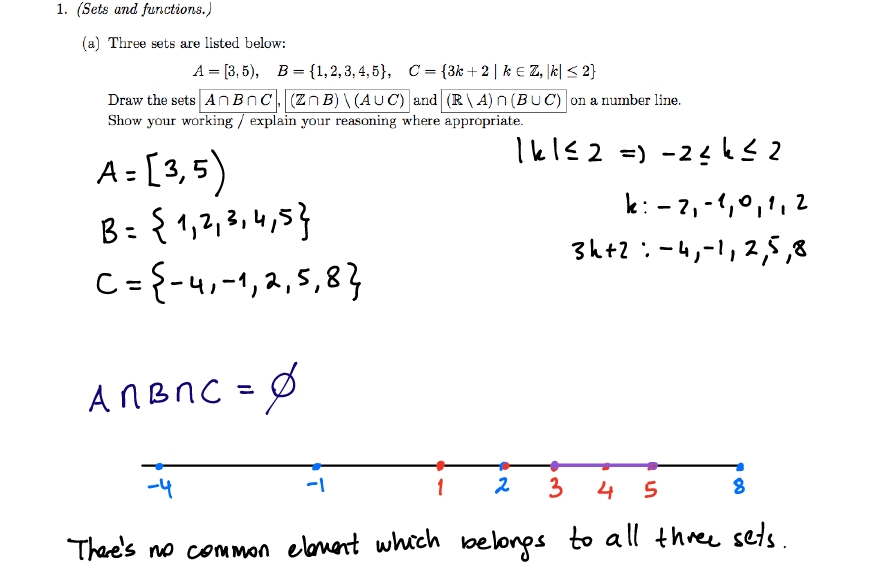 1. (Sets and functions.)
(a) Three sets are listed below:
A = [3, 5), B = {1, 2, 3, 4, 5}, C = {3k + 2 | k ∈ ℤ, |k| ≤ 2}
Draw the sets A ∩ B ∩ C, (ℤ ∩ B) \ (A ∪ C) and (ℝ \ A) ∩ (B ∪ C) on a number line.
Show your working / explain your reasoning where appropriate.
|k| ≤ 2 => -2 ≤ k ≤ 2
A = [3, 5)
k: -2, -1, 0, 1, 2
B = {1, 2, 3, 4, 5}
3k+2 : -4, -1, 2, 5, 8
C = {-4, -1, 2, 5, 8}
A ∩ B ∩ C = ∅
-4 -1 1 2 3 4 5 8
There's no common element which belongs to all three sets.